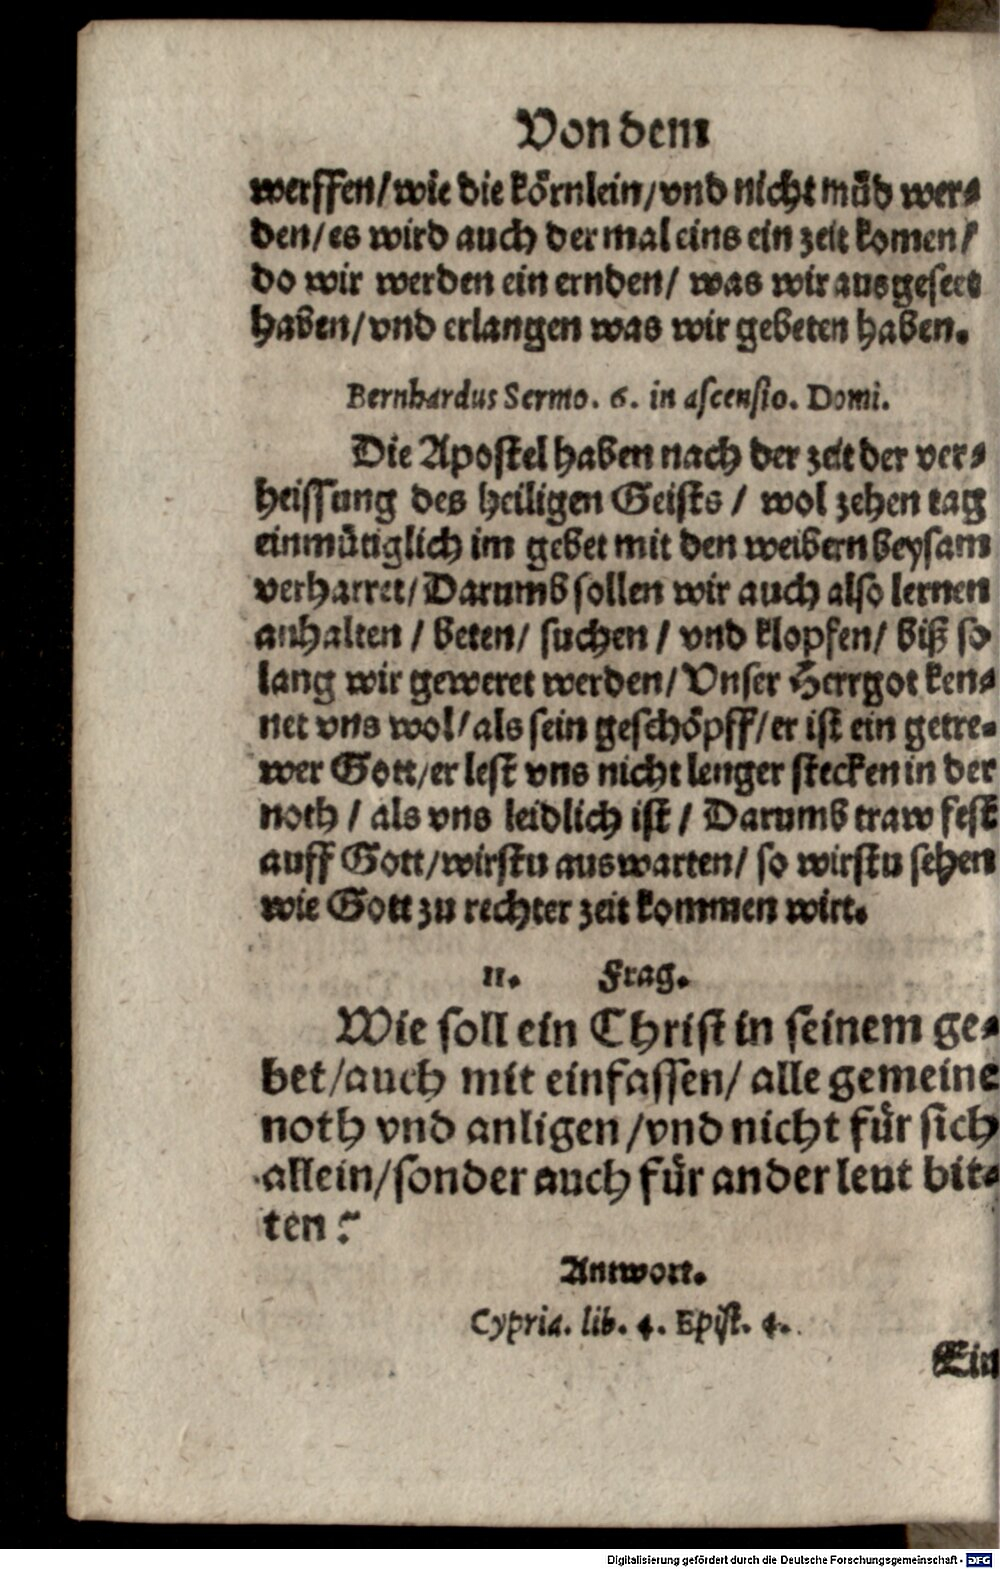 Von dem
werffen/wie die körnlein/vnd nicht müd wer-
den/es wird auch der mal eins ein zeit komen/
do wir werden ein ernden/ was wir ausgeseet
haben/vnd erlangen was wir gebeten haben.
Bernhardus Sermo. 6. in ascensio. Domi.
Die Apostel haben nach der zeit der ver-
heissung des heiligen Geists / wol zehen tag
einmütiglich im gebet mit den weibern beysam
verharret/Darumb sollen wir auch also lernen
anhalten / beten/ suchen / vnd klopfen/ biß so
lang wir geweret werden/Vnser Herrgot ken-
net vns wol/als sein geschöpff/er ist ein getre-
wer Gott/er lest vns nicht lenger stecken in der
noth / als vns leidlich ist / Darumb traw fest
auff Gott/wirstu auswarten/ so wirstu sehen
wie Gott zu rechter zeit kommen wirt.
11. Frag.
Wie soll ein Christ in seinem ge-
bet/auch mit einfassen/ alle gemeine
noth vnd anligen /vnd nicht für sich
allein/sonder auch für ander leut bit-
ten?
Antwort.
Cypria. lib. 4. Epist. 4.
Ein
Digitalisierung gefördert durch die Deutsche Forschungsgemeinschaft - DFG